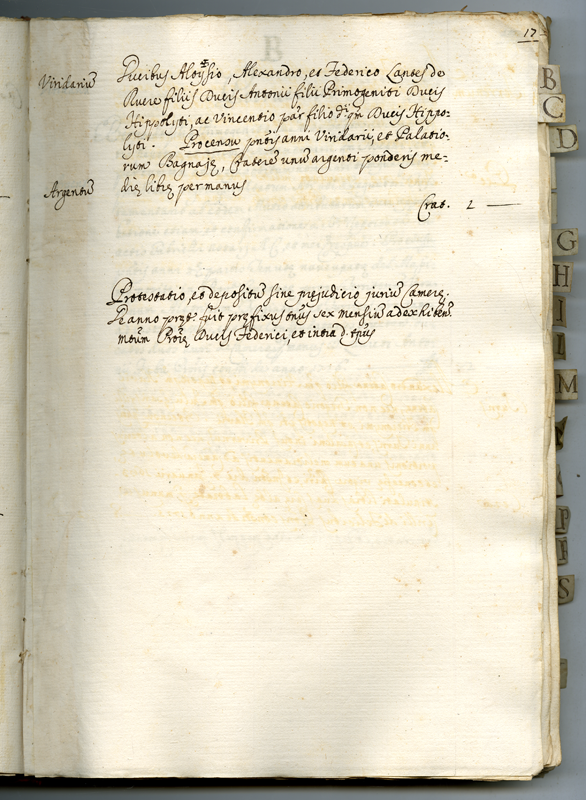 17
Viridariũ
Ducibus Aloysio, Alexandro, et Federico Lantes de
Ruere filiis Ducis Antonii filii Primogeniti Ducis
Hippolyti, ac Vincentio par filio q̃m Ducis Hippo-
lyti. Pro censu pñtis anni Viridarii, et Palatio-
rum Bagnaję, Crateris unius argenti ponderis me-
dię librę per manus
Argentũ
Crat. 1 —
Protestatio, et depositũ sine pręjudicio juriũ Camerę.
De anno pręt.º fuit pręfixus tñus sex mensiũ ad exhiben.
Ducis Federici, et intra d. tñus
B
C
D
G
H
I
I
M
P
P
S